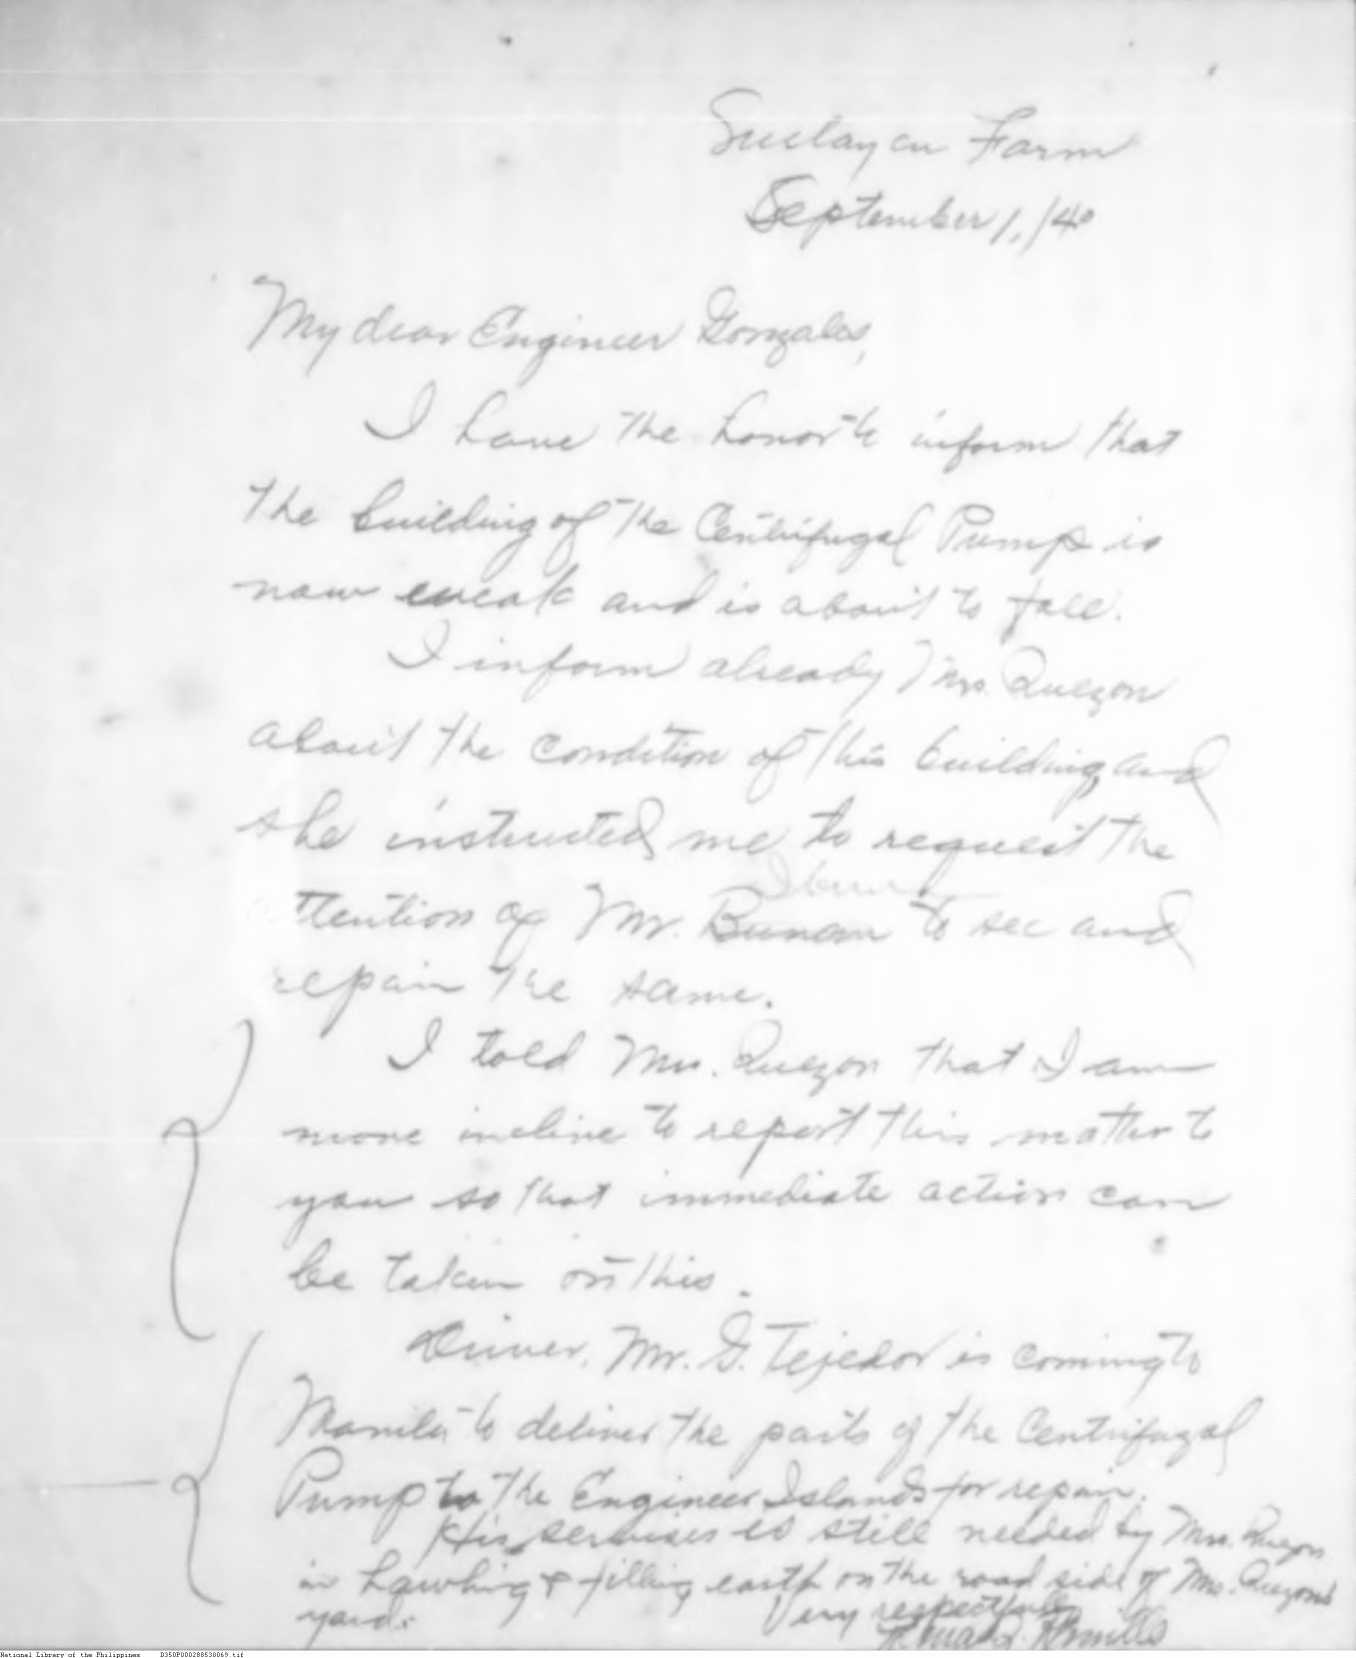 Suclayan Farm
September 1, '40
My dear Engineer Gonzales,
I have the honor to inform that
the building of the Centrifugal Pump is
now weak and is about to fall.
I inform already Mrs. Quezon
about the condition of this building, and
she instructed me to request the
ttention of Mr. Bunan to see and
repair the same.
I told Mrs. Quezon that I am
more incline to report this matter to
you so that immediate action can
be taken on this.
Driver, Mr. G. Tejedor is coming to
Manila to deliver the parts of the Centrifugal
Pump to the Engineer Islands for repair.
His servises is still needed by Mrs. Quezon
in hawling & filling earth on the road side of Mrs. Quezon's
yard.
Very respectfully
National Library of the Philippines D350P000288530069.tif